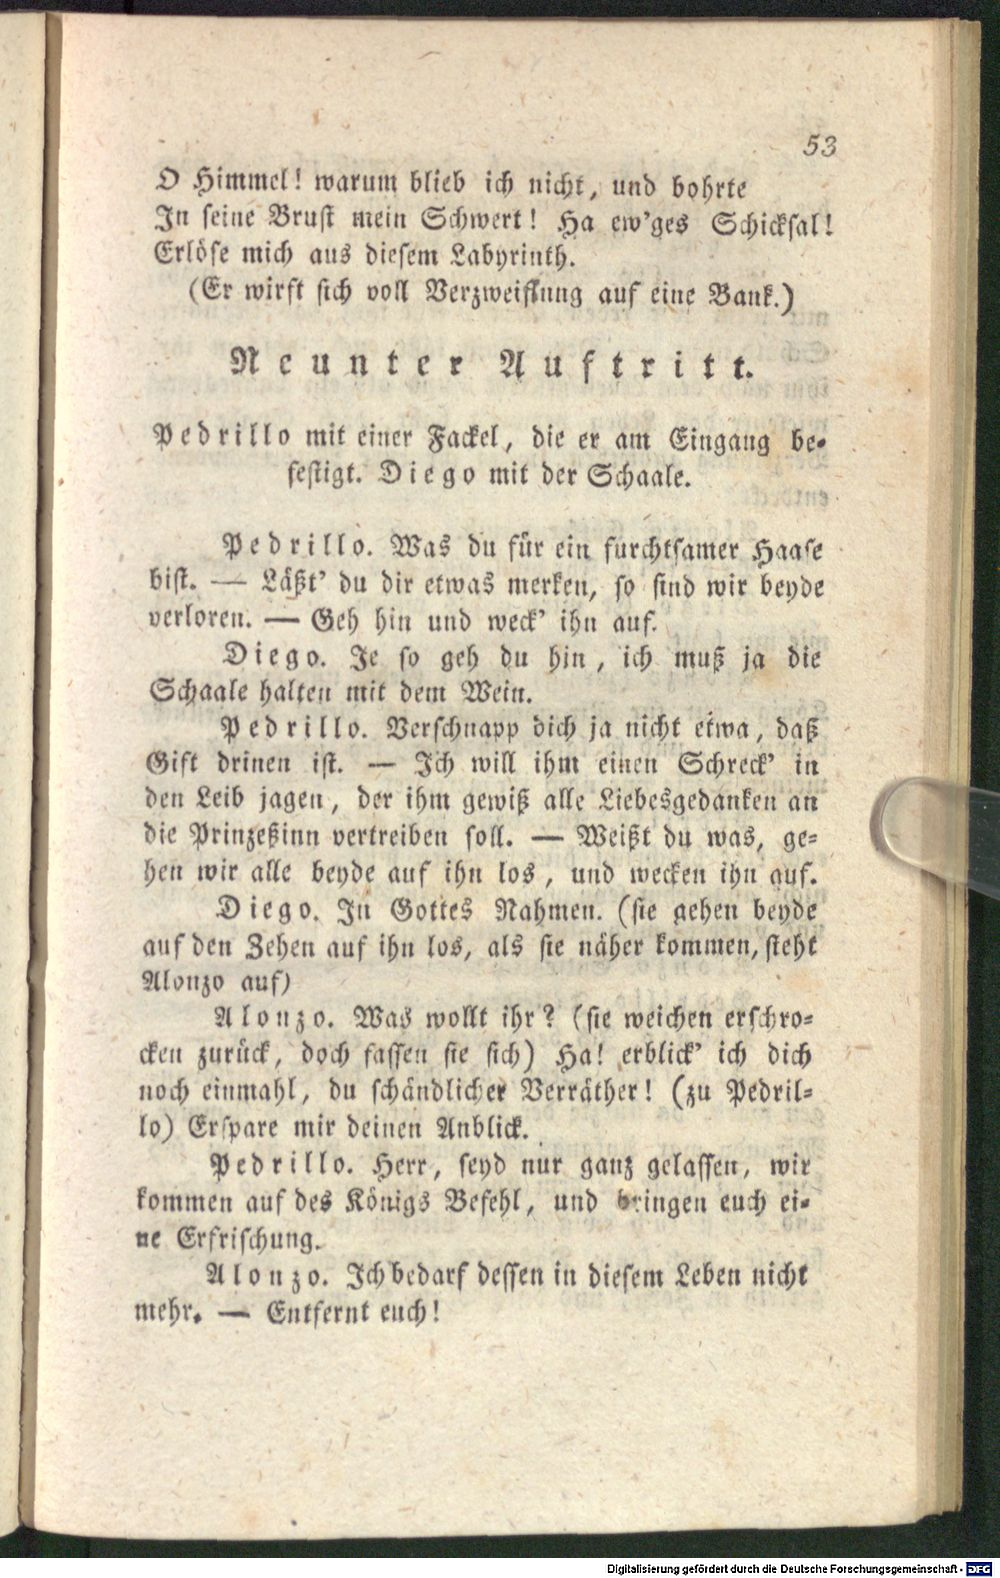 53
O Himmel! warum blieb ich nicht, und bohrte
In seine Brust mein Schwert! Ha ew'ges Schicksal!
Erlöse mich aus diesem Labyrinth.
(Er wirft sich voll Verzweiflung auf eine Bank.)
Neunter Auftritt.
Pedrillo mit einer Fackel, die er am Eingang be-
festigt. Diego mit der Schaale.
Pedrillo. Was du für ein furchtsamer Haase
bist. — Läßt' du dir etwas merken, so sind wir beyde
verloren. — Geh hin und weck' ihn auf.
Diego. Je so geh du hin, ich muß ja die
Schaale halten mit dem Wein.
Pedrillo. Verschnapp dich ja nicht etwa, daß
Gift drinen ist. — Ich will ihm einen Schreck' in
den Leib jagen, der ihm gewiß alle Liebesgedanken an
die Prinzeßinn vertreiben soll. — Weißt du was, ge-
hen wir alle beyde auf ihn los, und wecken ihn auf.
Diego. In Gottes Nahmen. (sie gehen beyde
auf den Zehen auf ihn los, als sie näher kommen, steht
Alonzo auf)
Alonzo. Was wollt ihr? (sie weichen erschro-
cken zurück, doch fassen sie sich) Ha! erblick' ich dich
noch einmahl, du schändlicher Verräther! (zu Pedril-
lo) Erspare mir deinen Anblick.
Pedrillo. Herr, seyd nur ganz gelassen, wir
kommen auf des Königs Befehl, und bringen euch ei-
ne Erfrischung.
Alonzo. Ich bedarf dessen in diesem Leben nicht
mehr. — Entfernt euch!
Digitalisierung gefördert durch die Deutsche Forschungsgemeinschaft - DFG